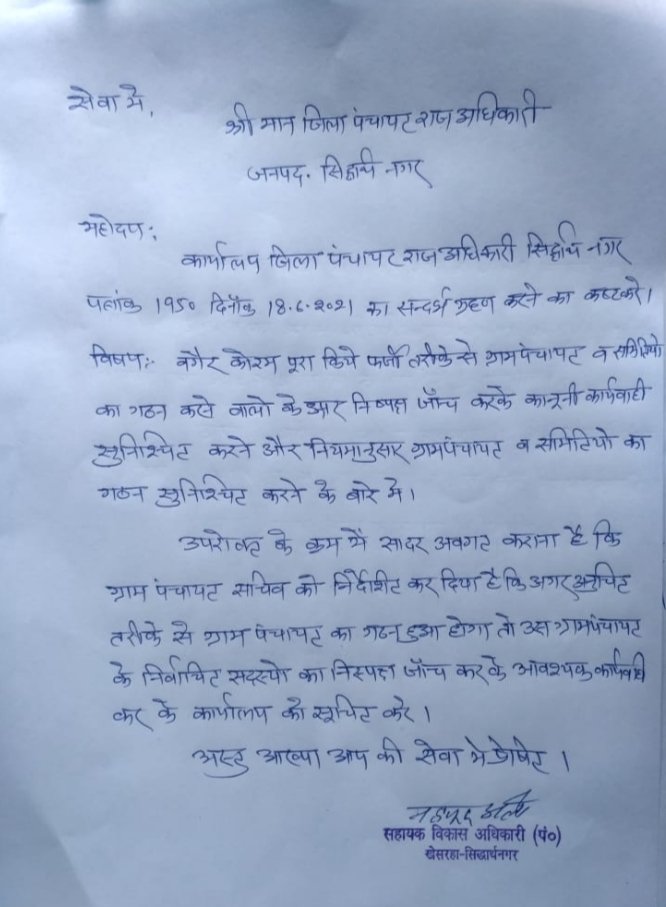 सेवा में,
श्री मान जिला पंचायत राज अधिकारी
जनपद. सिद्धार्थ नगर
महोदय:
कार्यालय जिला पंचायत राज अधिकारी सिद्धार्थ नगर
पत्रांक 1950 दिनाँक 18.6.2021 का सन्दर्भ ग्रहण करने का कष्ट करें।
विषय:- बगैर कोरम पूरा किये फर्जी तरीके से ग्रामपंचायत व समितियो
का गठन करने वालो के ऊपर निष्पक्ष जाँच करके कानूनी कार्यवाही
सुनिश्चित करने और नियमानुसार ग्रामपंचायत व समितियो का
गठन सुनिश्चित करने के बारे मे।
उपरोक्त के क्रम में सादर अवगत कराना है कि
ग्राम पंचायत सचिव को निर्देशित कर दिया है कि अगर अनुचित
तरीके से ग्राम पंचायत का गठन हुआ होगा तो उस ग्रामपंचायत
के निर्वाचित सदस्यो का निस्पक्ष जाँच कर के आवश्यक कार्यवाही
कर के कार्यालय को सूचित करे।
अस्तु आख्या आप की सेवा मे प्रेषित।
सहायक विकास अधिकारी (पं०)
खेसरहा-सिद्धार्थनगर